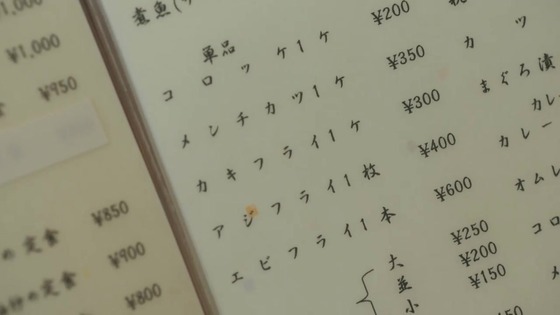 ¥1,000
¥1,000
¥950
の定食 ¥850
の定食 ¥900
¥800
煮魚(
¥200
単品
コロッケ1ケ ¥200
メンチカツ1ケ ¥350
カキフライ1ケ ¥300
アジフライ1枚 ¥400
エビフライ1本 ¥600
大 ¥250
並 ¥200
小 ¥150
カツ
まぐろ漬
カレ
カレー
オムレ
コロ
メ